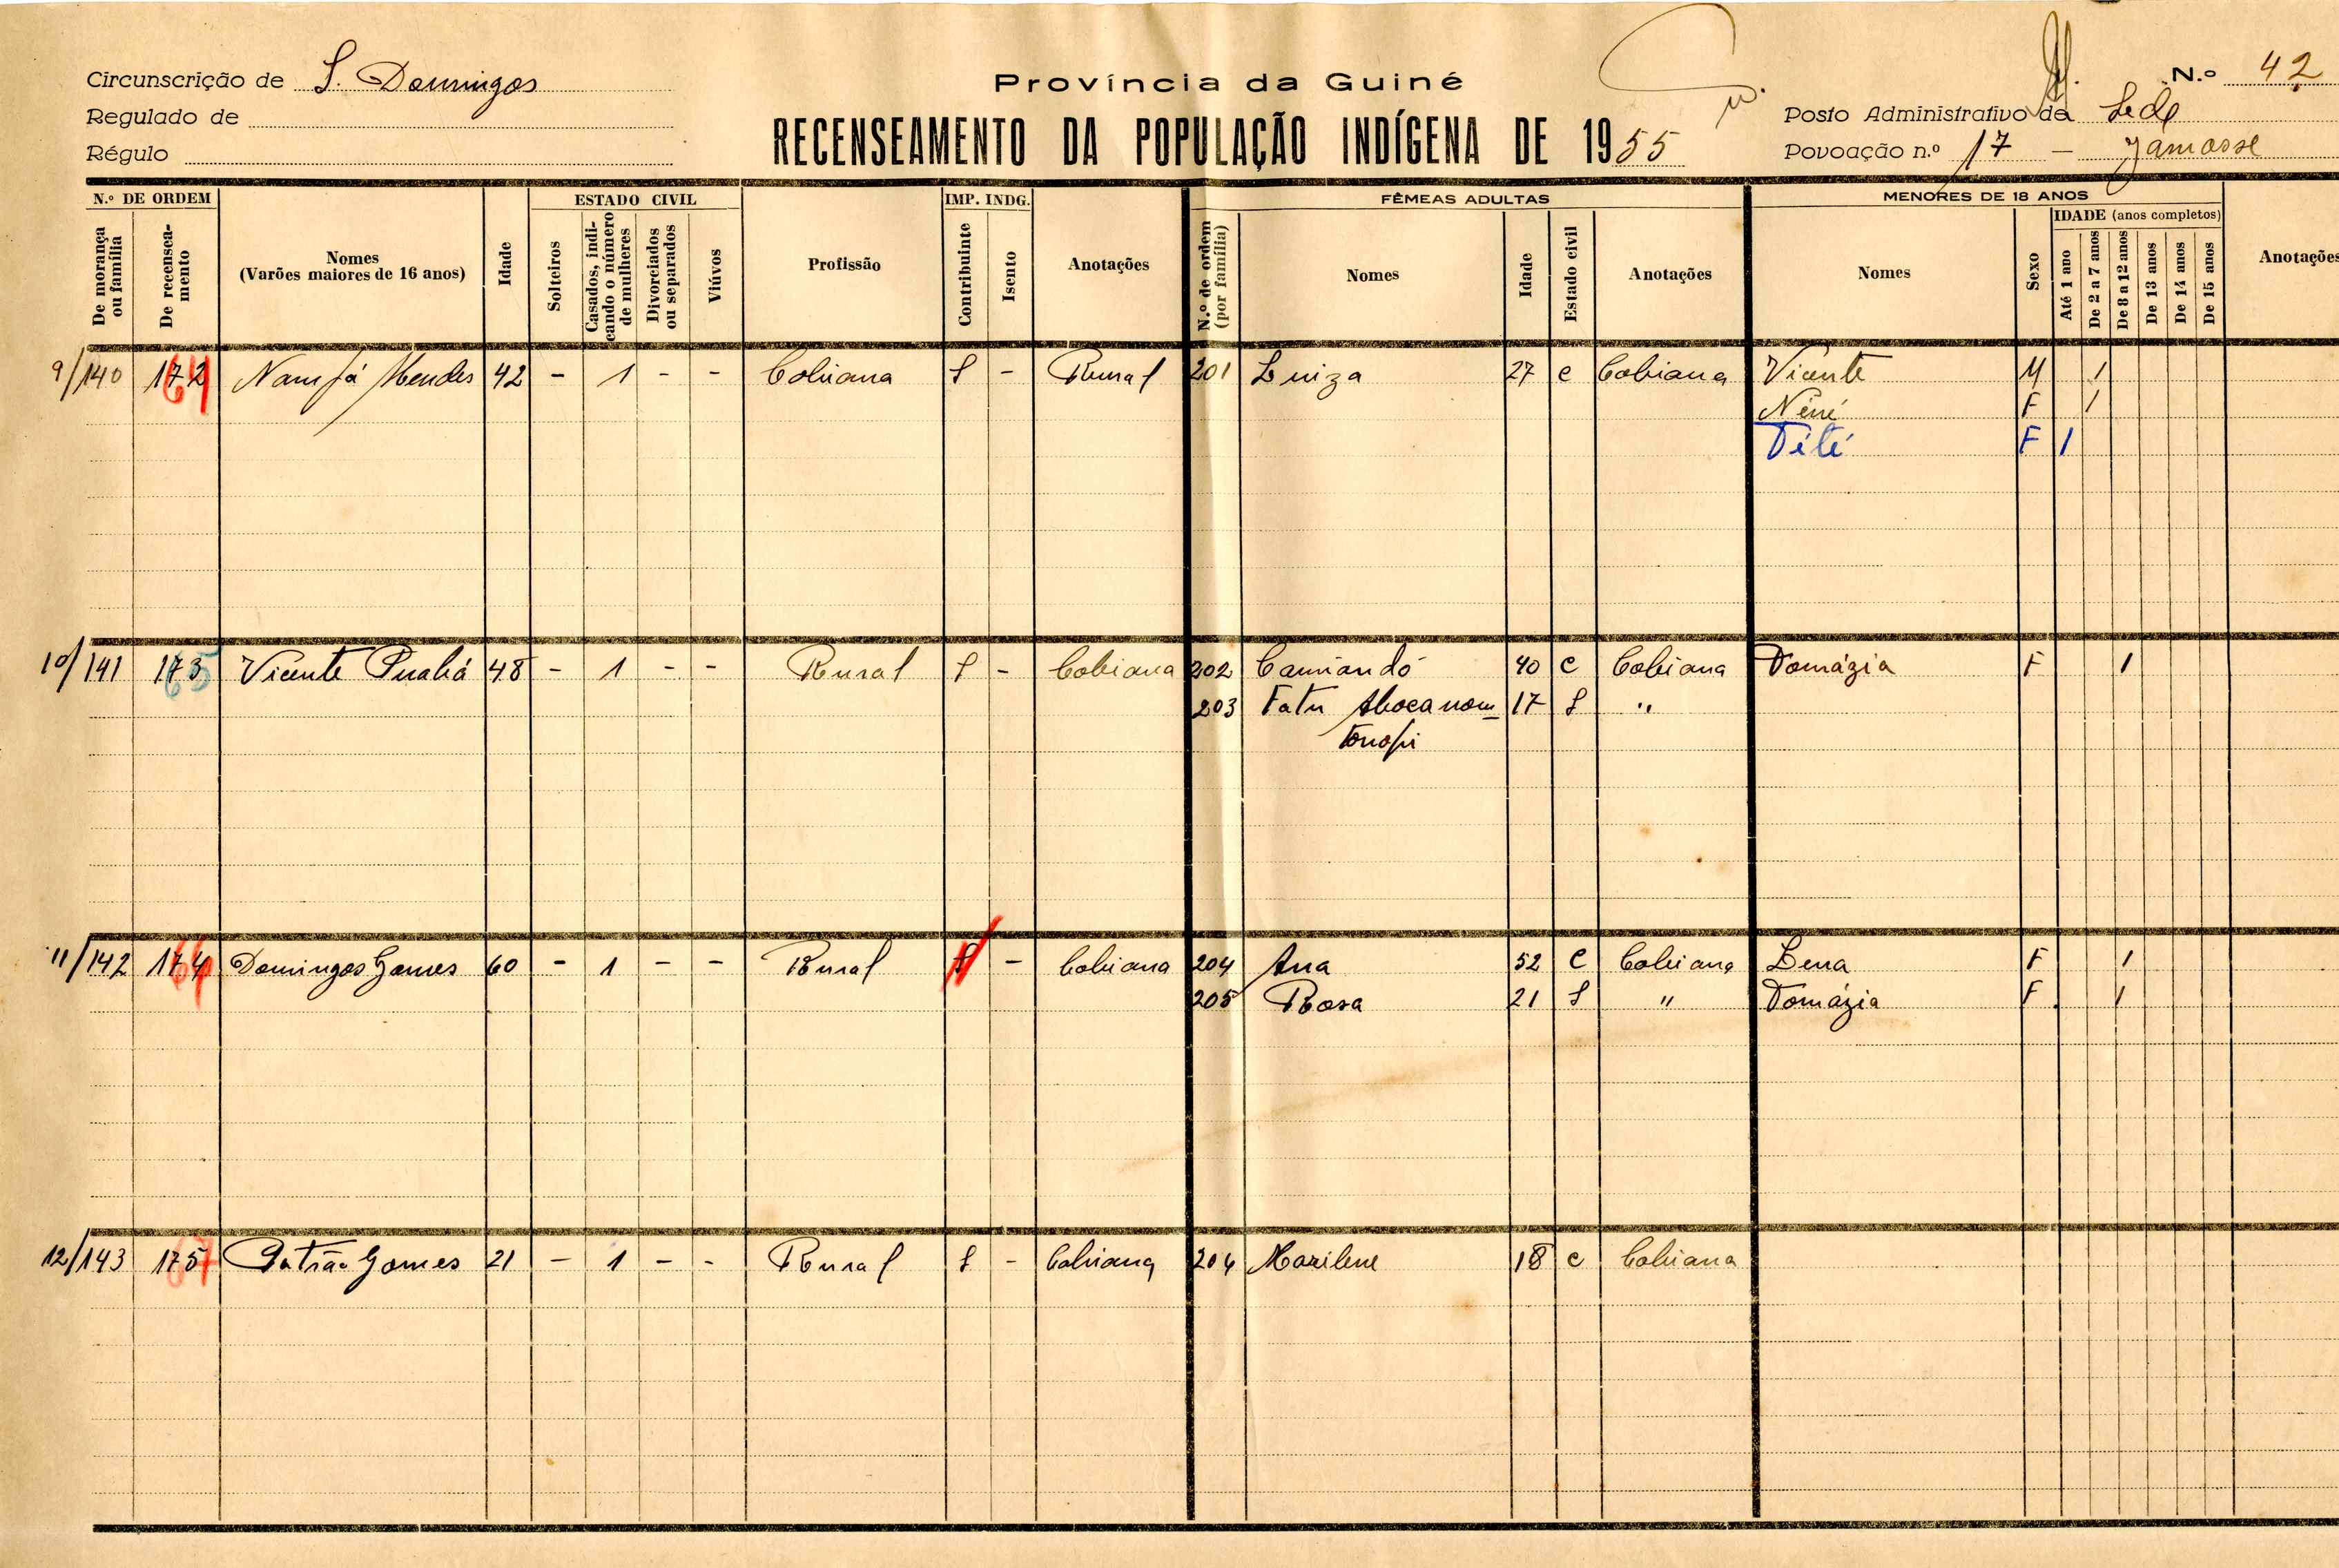 Circunscrição de S. Domingos
Regulado de
Régulo
Província da Guiné
RECENSEAMENTO DA POPULAÇÃO INDÍGENA DE 1955
N.º 42
Posto Administrativo da Sede
Povoação n.º 17 - Jamosse
N.º DE ORDEM
De morança ou família
De recenseamento
Nomes
(Varões maiores de 16 anos)
Idade
ESTADO CIVIL
Solteiros
Casados, indicando o número de mulheres
Divorciados ou separados
Viúvos
Profissão
IMP. INDG.
Contribuinte
Isento
Anotações
FÊMEAS ADULTAS
N.º de ordem (por família)
Nomes
Idade
Estado civil
Anotações
MENORES DE 18 ANOS
Nomes
Sexo
IDADE (anos completos)
Até 1 ano
De 2 a 7 anos
De 8 a 12 anos
De 13 anos
De 14 anos
De 15 anos
Anotações
9/140 172 64 Namfá Mendes 42 - 1 - - Cobiana S - Rural 201 Luiza 27 c Cobiana Vicente M 1
Néné F 1
Tété F 1
10/141 173 65 Vicente 48 - 1 - - Rural S - Cobiana 202 Camiandó 40 c Cobiana Tomázia F 1
203 Fatu 17 S "
11/142 174 66 Domingos Gomes 60 - 1 - - Rural S - Cobiana 204 Ana 52 C Cobiana Lena F 1
205 Rosa 21 S " Tomázia F 1
12/143 175 67 Patrão Gomes 21 - 1 - - Rural S - Cobiana 204 Marilene 18 c Cobiana